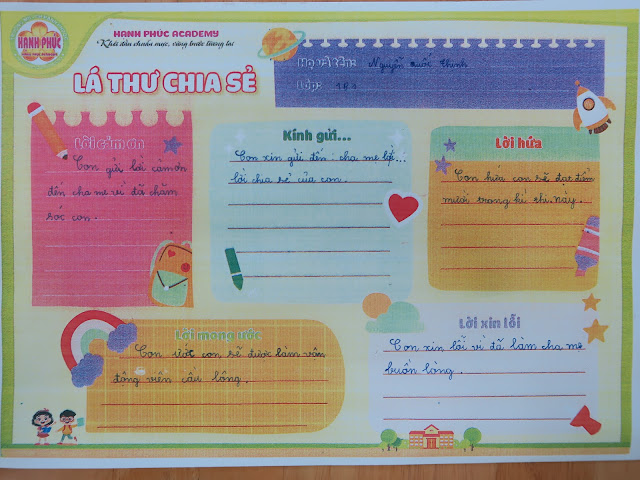 HẠNH PHÚC ACADEMY
Khởi đầu chuẩn mực, vững bước tương lai
HẠNH PHÚC
LÁ THƯ CHIA SẺ
Họ và tên: Nguyễn Quốc Thịnh
Lớp:
Lời cảm ơn
Con gửi lời cảm ơn
đến cha mẹ vì đã chăm
sóc con.
Kính gửi...
Con xin gửi đến : cha mẹ lời...
lời chia sẻ của con.
Lời hứa
Con hứa con sẽ đạt điểm
mười trong kì thi này.
Lời mong ước
Con ước con sẽ được làm vận
động viên cầu lông.
Lời xin lỗi
Con xin lỗi vì đã làm cha mẹ
buồn lòng.